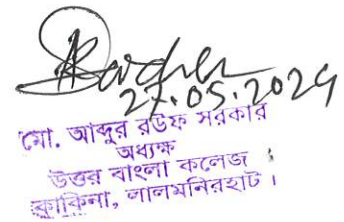 27.05.2024
মো. আব্দুর রউফ সরকার
অধ্যক্ষ
উত্তর বাংলা কলেজ
কাকিনা, লালমনিরহাট।